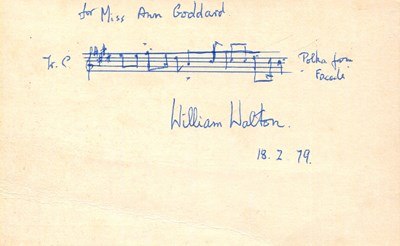 for Miss Ann Goddard
Tr. C
"Polka from
Façade"
William Walton.
18. 2 79.